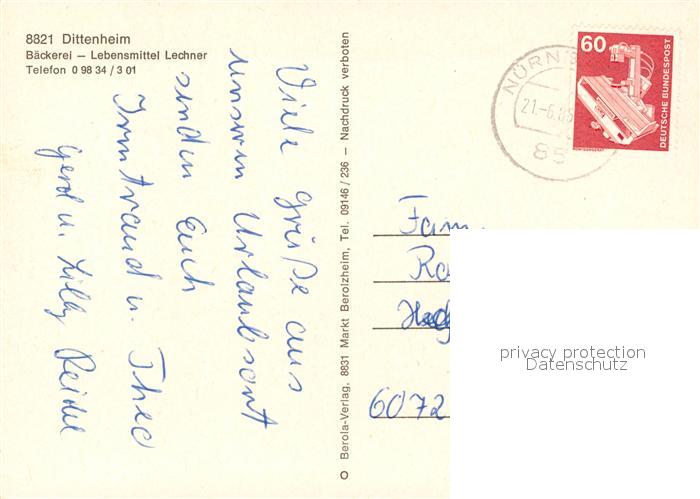 8821 Dittenheim
Bäckerei – Lebensmittel Lechner
Telefon 0 98 34 / 3 01
Viele Grüße aus
unserm Urlaubsort
senden Euch
Irmtraud u. Theo
Gerd u. Lilly Reidel
Berola-Verlag, 8831 Markt Berolzheim, Tel. 09146 / 236 – Nachdruck verboten
60
DEUTSCHE BUNDESPOST
NÜRN
21.-6.85
85
Fam.
Ro
6072
privacy protection
Datenschutz